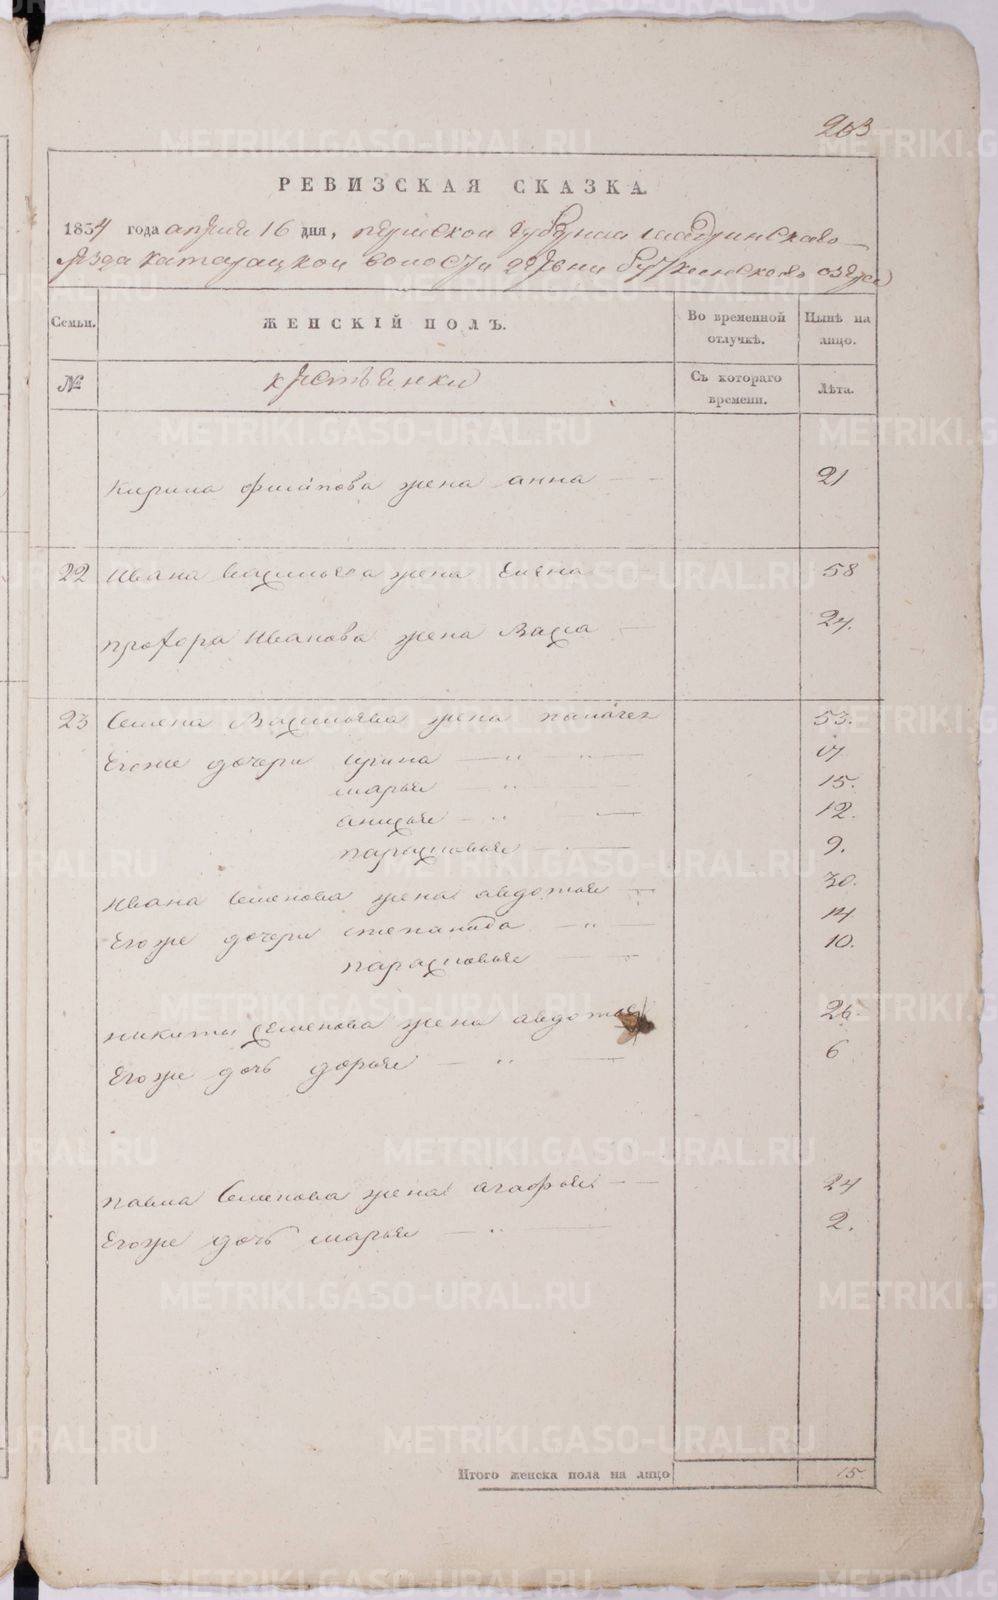 263
РЕВИЗСКАЯ СКАЗКА.
1834 года апреля 16 дня, пермской губернии шадринскаго
уезда катайацкой волости деревни озера
Семьи.
ЖЕНСКІЙ ПОЛЪ.
Во временной отлучкѣ.
Нынѣ на лицо.
№
крестьянки
Съ котораго времени.
Лѣта.
Кирила филипова жена анна 21
22 Ивана васильева жена Елена 58
прохора Иванова жена Васса 24.
23 Семена Васильева жена 53.
Егоже дочери ирина 17.
марья 15.
анисья 12.
парасковья 9.
Ивана Семенова жена авдотья 30.
Егоже дочери степанида 14
парасковья 10.
никиты семенова жена авдотья 26
Егоже дочь дарья 6
павла Семенова жена агафья 24
Егоже дочь марья 2.
Итого женска пола на лицо 15.
METRIKI.GASO-URAL.RU